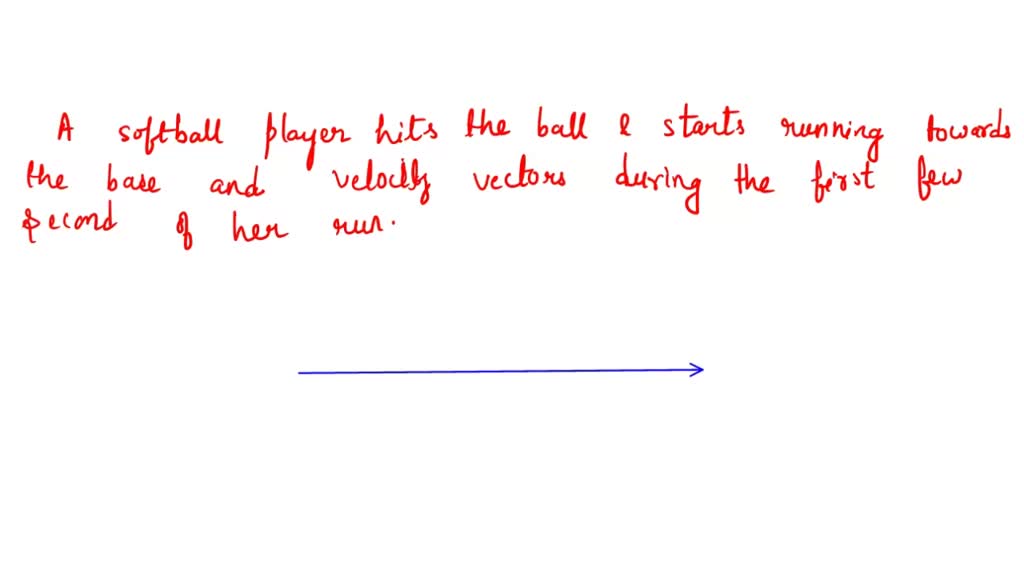 A softball player hits the ball & starts running towards
the base and velocity vectors during the first few
second of her run.